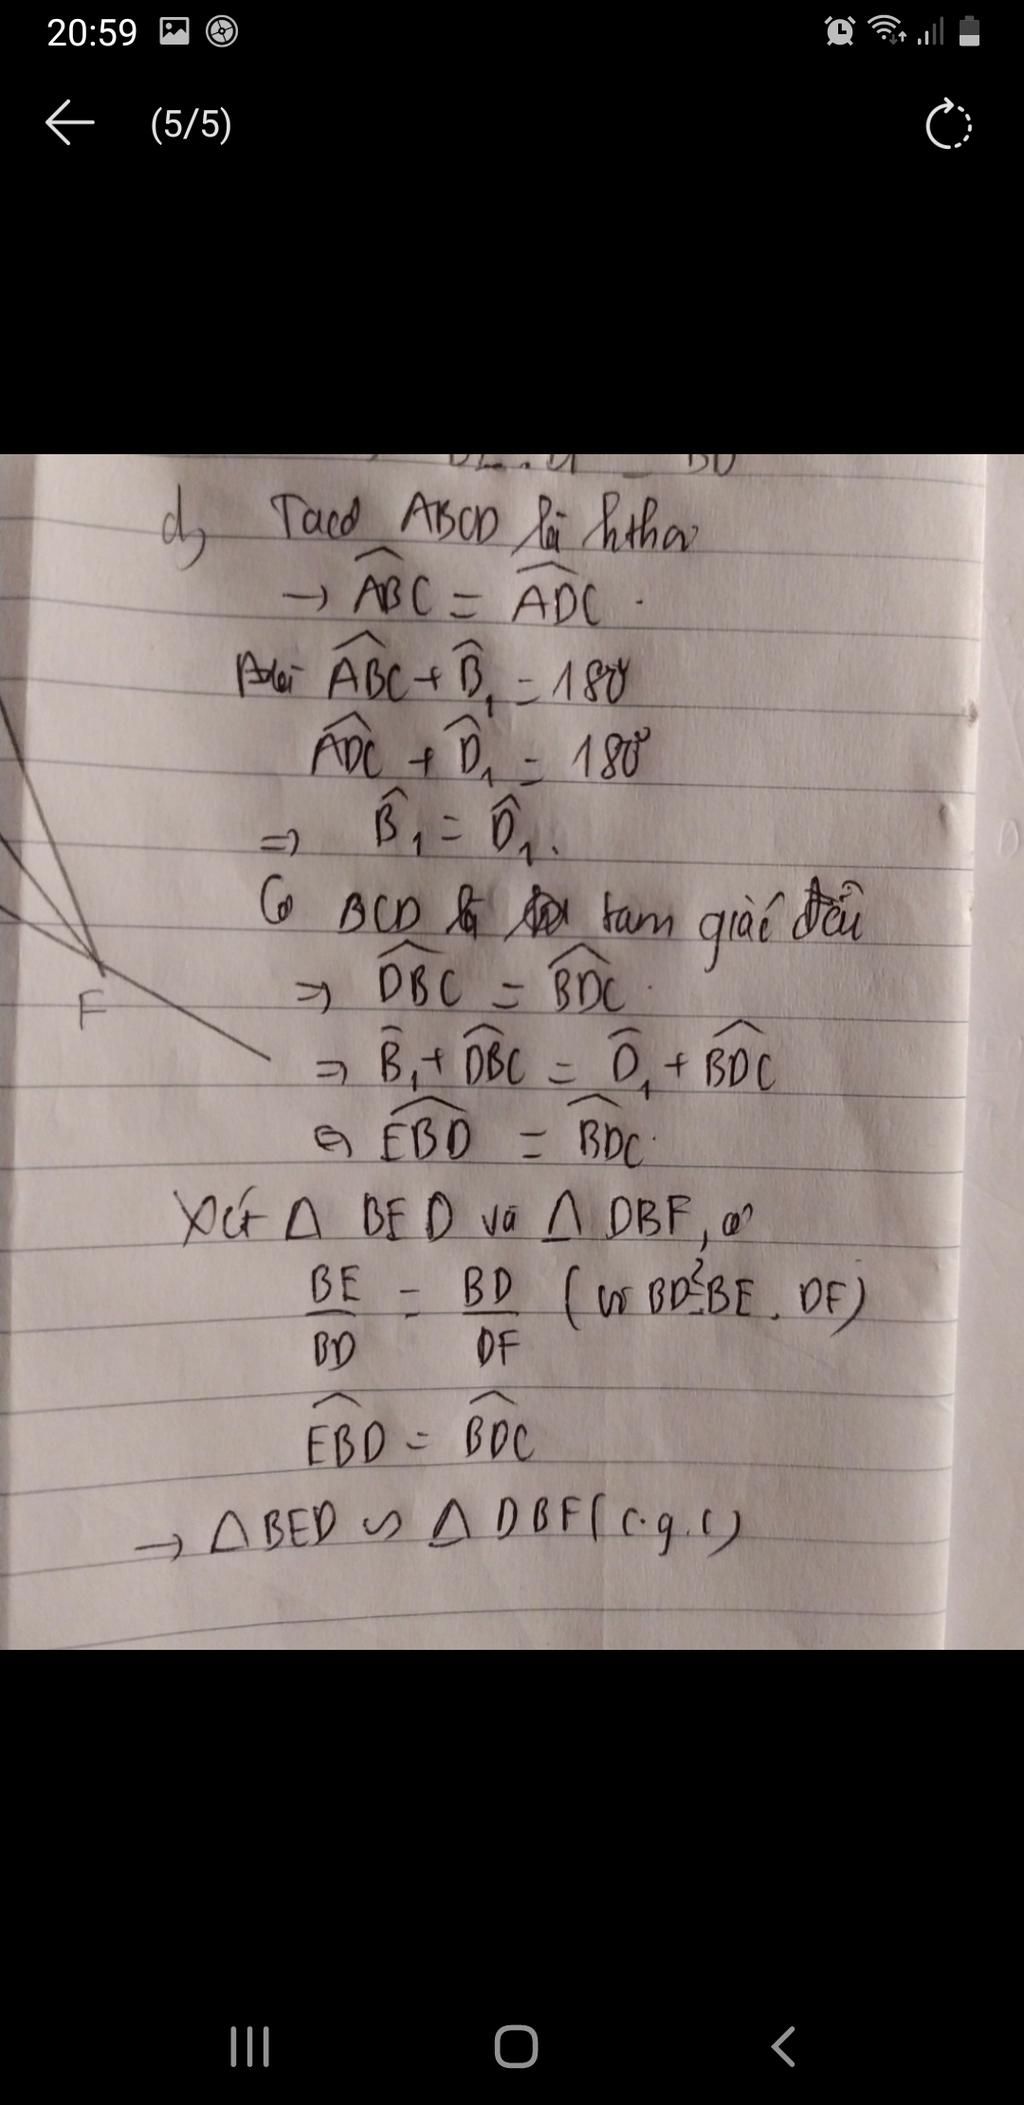 20:59
(5/5)
d, Ta có ABCD là hthoi
→ ABC = ADC.
Mà ABC + B₁ = 180°
ADC + D₁ = 180°
⇒ B₁ = D₁.
Có BCD là tam giác đều
⇒ DBC = BDC.
⇒ B₁ + DBC = D₁ + BDC
⇔ EBD = BDC.
Xét Δ BED và Δ DBF, có
BE/BD = BD/DF (vì BD²=BE.DF)
EBD = BDC
→ ΔBED ∽ Δ DBF (c.g.c)
F